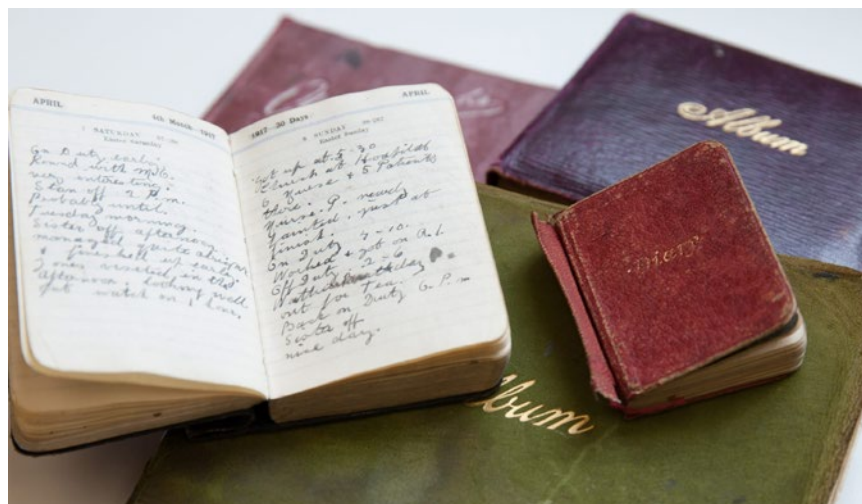 APRIL
4th Month
1917
7 SATURDAY
Easter Saturday
On Duty early.
Round with M.O.
very interesting.
Sian off 2 P.m.
Probably until
Tuesday morning.
Sister off afternoon.
managed quite alright
& finished up early.
Jones visited in the
afternoon, looking well
Put watch on 1 hour.
1917 30 Days
APRIL
8 SUNDAY
Easter Sunday
Got up at 5-30
Church at Hospital
6 Nurse & 5 Patients
there.
Nurse. P. nearly
fainted. just at
finish.
On Duty 7-10.
Worked & got on A.1.
Off Duty 2-6
out for Tea.
Back on Duty 6. P.m
Sister off
nice day.
Album
Diary
Album